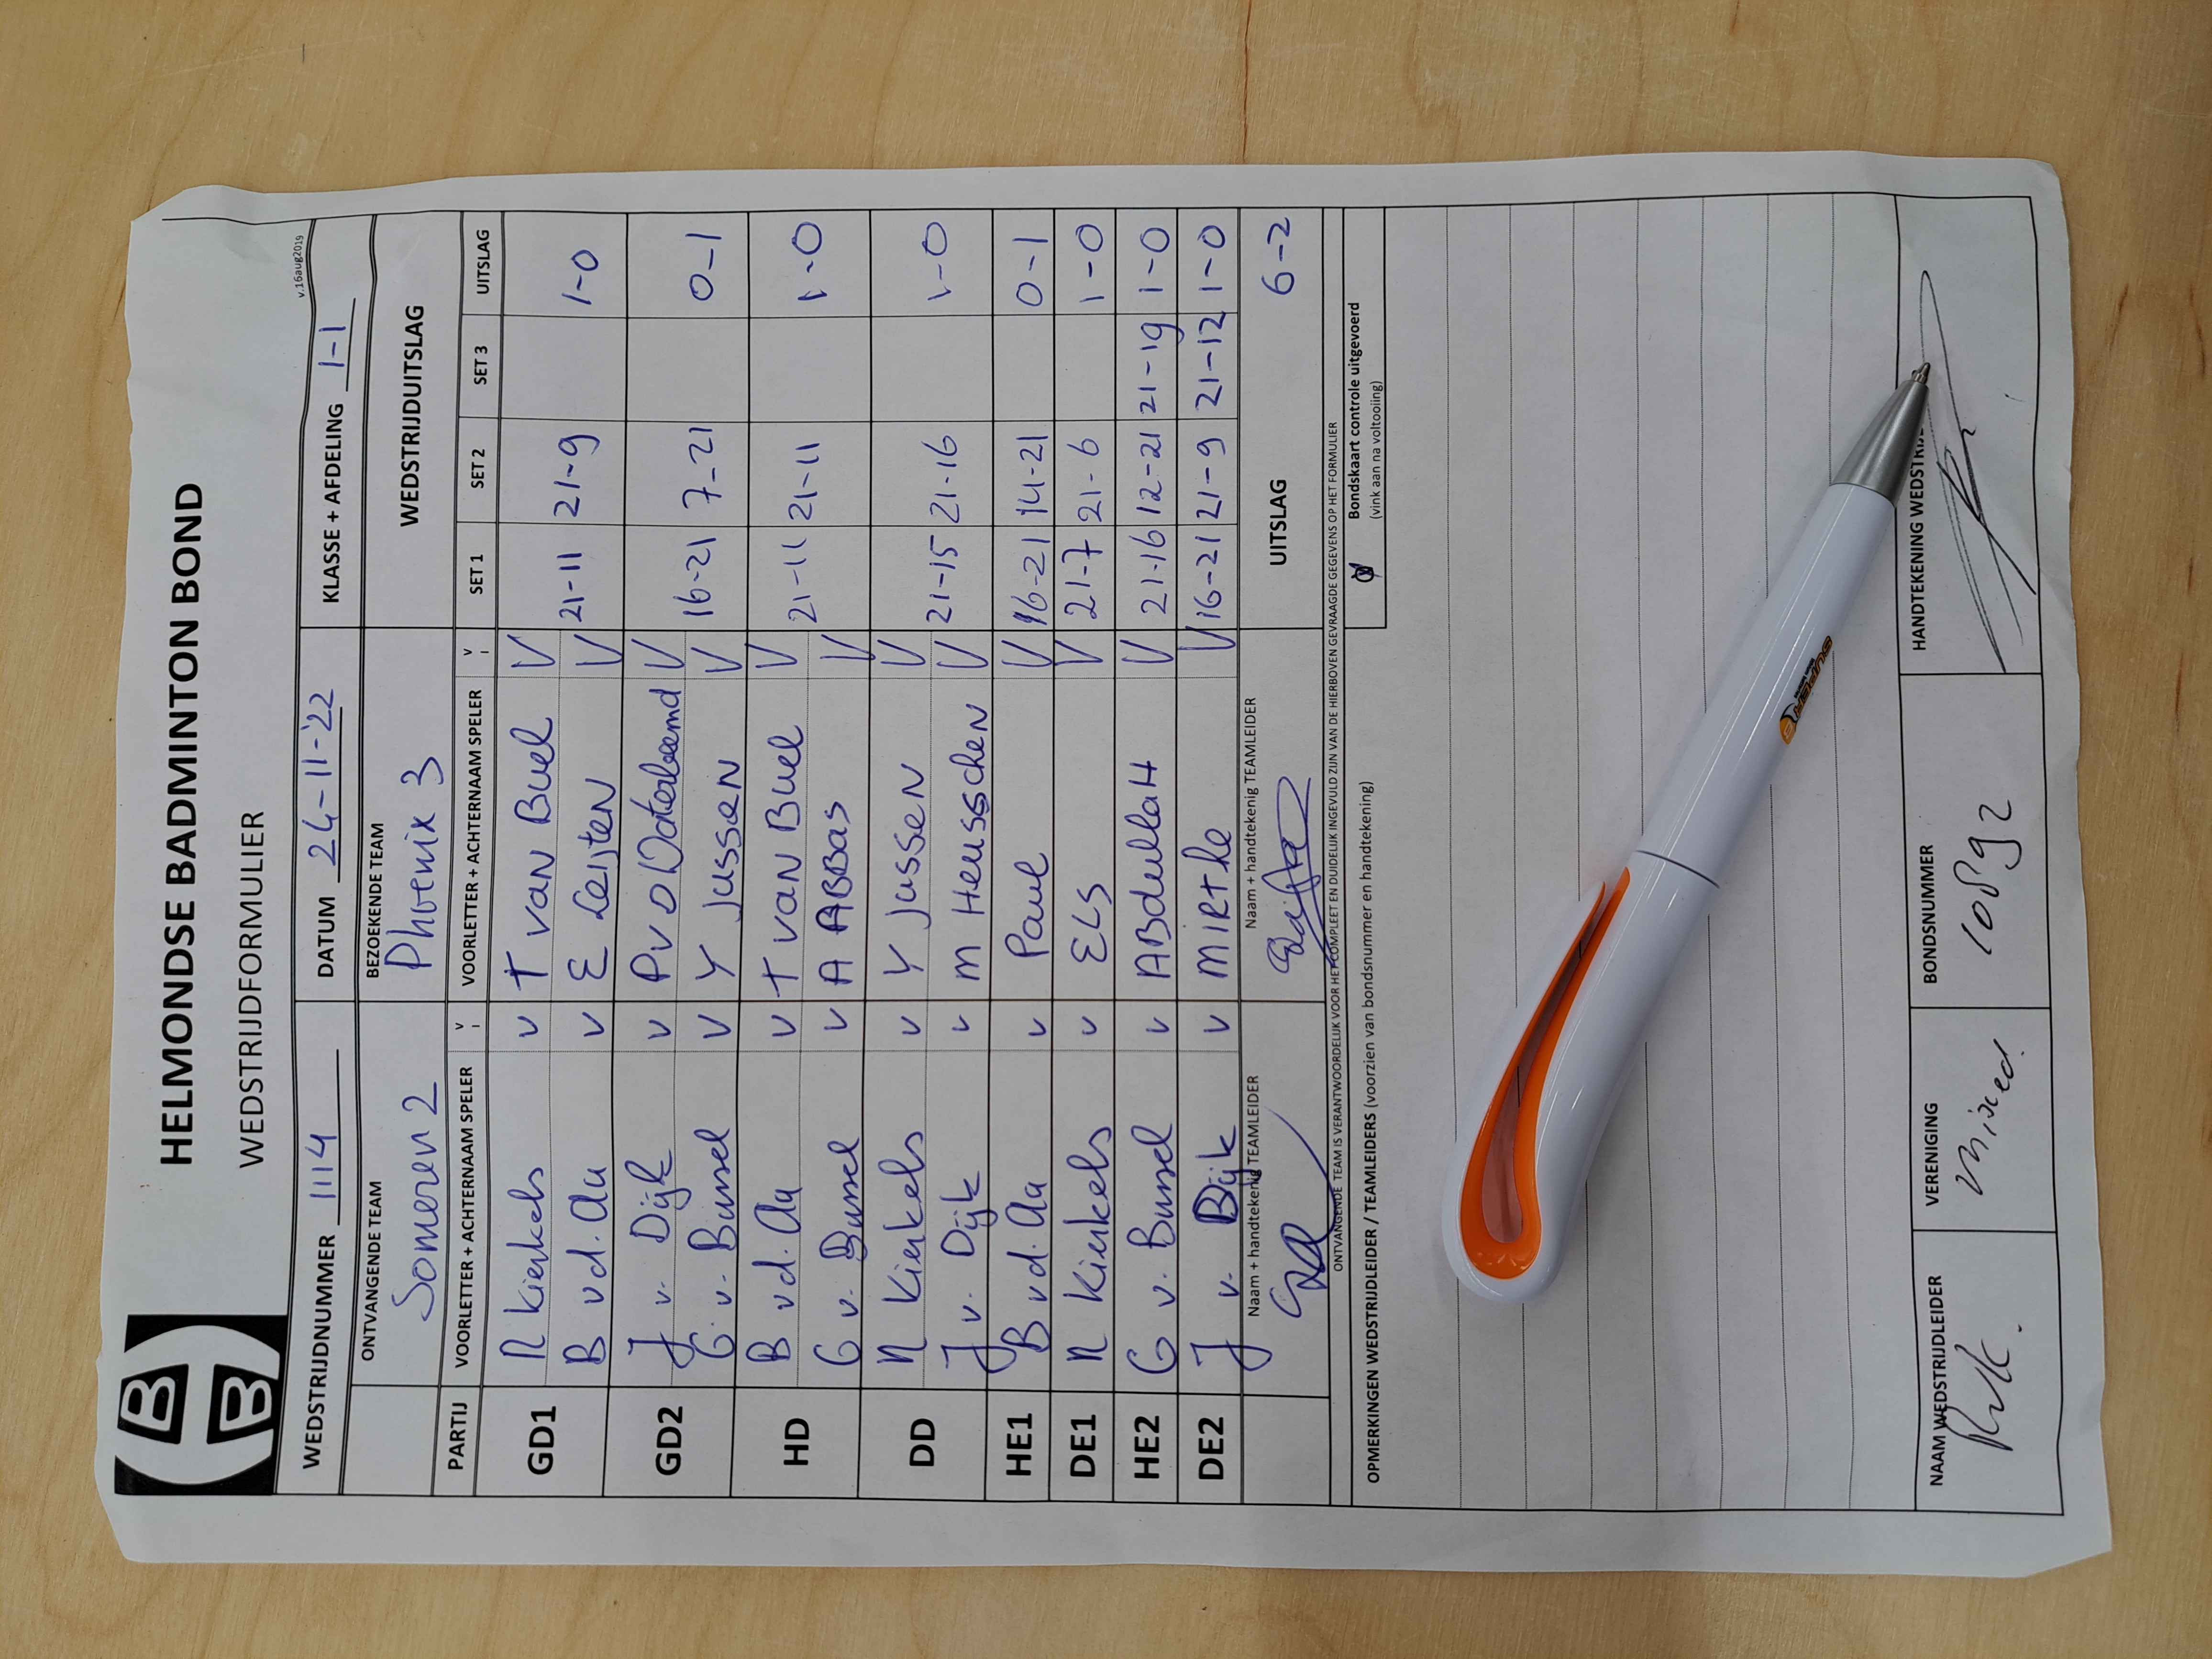 HELMONDSE BADMINTON BOND
WEDSTRIJDFORMULIER
v.16aug2019
WEDSTRIJDNUMMER 1114 DATUM 24-11-'22 KLASSE + AFDELING 1-1
ONTVANGENDE TEAM BEZOEKENDE TEAM WEDSTRIJDUITSLAG
Someren 2 Phoenix 3
PARTIJ VOORLETTER + ACHTERNAAM SPELER V VOORLETTER + ACHTERNAAM SPELER V SET 1 SET 2 SET 3 UITSLAG
GD1 N Kierkels V T van Buel V
B vd. Aa V E Leijten V 21-11 21-9 1-0
GD2 J v. Dijk V P v D Waterbeemd V
G. v. Bussel V Y Jussen V 16-21 7-21 0-1
HD B vd. Aa V T van Buel V
G v. Bussel V A ABBas V 21-11 21-11 1-0
DD N Kierkels V Y Jussen V
J v. Dijk V M HeusscheN V 21-15 21-16 1-0
HE1 B vd. Aa V Paul V 16-21 14-21 0-1
DE1 N Kierkels V ELS V 21-7 21-6 1-0
HE2 G v. Bussel V ABdullaH V 21-16 12-21 21-19 1-0
DE2 J v. Dijk V MIRthe V 16-21 21-9 21-12 1-0
Naam + handtekenig TEAMLEIDER Naam + handtekenig TEAMLEIDER UITSLAG 6-2
ONTVANGENDE TEAM IS VERANTWOORDELIJK VOOR HET COMPLEET EN DUIDELIJK INGEVULD ZIJN VAN DE HIERBOVEN GEVRAAGDE GEGEVENS OP HET FORMULIER
Bondskaart controle uitgevoerd
(vink aan na voltooiing)
OPMERKINGEN WEDSTRIJDLEIDER / TEAMLEIDERS (voorzien van bondsnummer en handtekening)
NAAM WEDSTRIJDLEIDER VERENIGING BONDSNUMMER HANDTEKENING
mixed